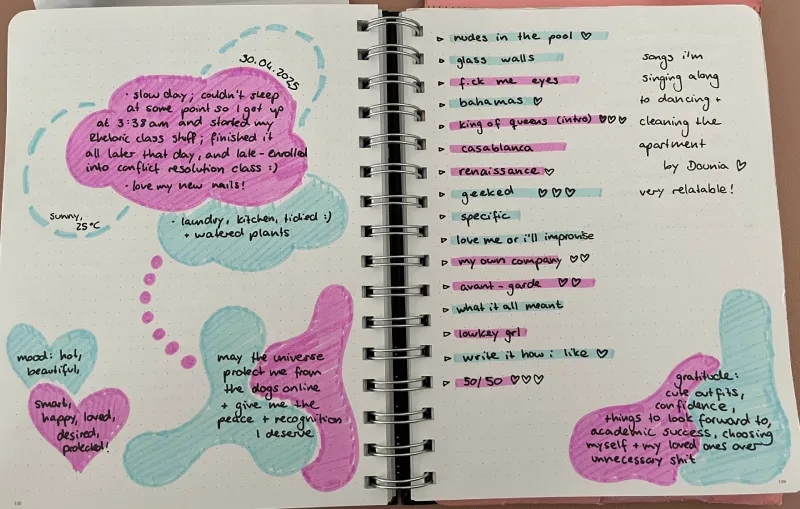 30.04.2025
· slow day; couldn't sleep
at some point so I get up
at 3:38am and started my
Rhetoric class stuff; finished it
all later that day, and late-enrolled
into conflict resolution class :)
· love my new nails!
sunny,
25°C
· laundry, kitchen, tidied :)
+ watered plants
mood: hot,
beautiful,
smart,
happy, loved,
desired,
protected!
may the universe
protect me from
the dogs online
+ give me the
peace + recognition
I deserve
▹ nudes in the pool ♡
▹ glass walls
▹ f.ck me eyes
▹ bahamas ♡
▹ king of queens (intro) ♡♡♡
▹ casablanca
▹ renaissance ♡
▹ geeked ♡♡♡
▹ specific
▹ love me or i'll improvise
▹ my own company ♡♡
▹ avant-garde ♡♡
▹ what it all meant
▹ lowkey grl
▹ write it how i like ♡
▹ 50/50 ♡♡♡
songs i'm
singing along
to dancing +
cleaning the
apartment
by Dounia ♡
very relatable!
gratitude:
cute outfits,
confidence,
things to look forward to,
academic success, choosing
myself + my loved ones over
unnecessary shit